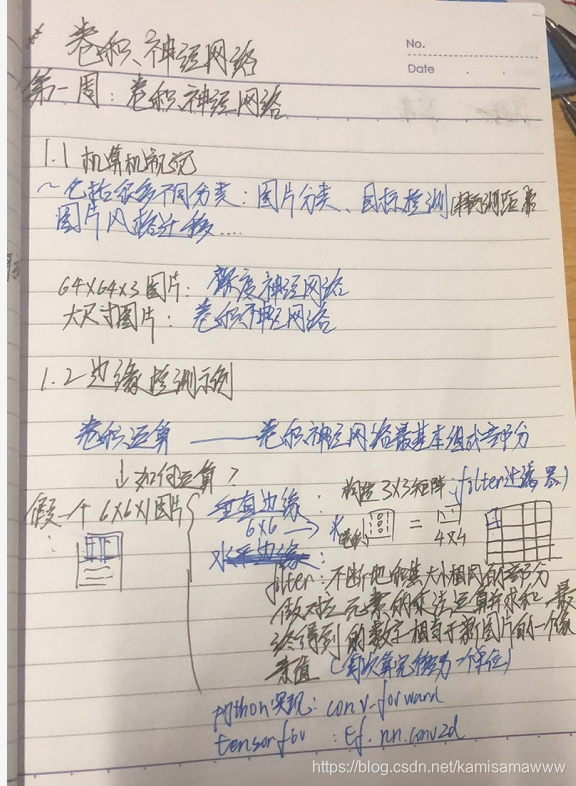 卷积神经网络
No.
Date
第一周：卷积神经网络
1.1 机算机视觉
~包括很多不同分类：图片分类、目标检测
图片风格迁移....
64×64×3图片：深度神经网络
大尺寸图片：卷积神经网络
1.2 边缘检测示例
卷积运算 —— 卷积神经网络最基本组成部分
↓如何运算？
假一个6×6×1图片
垂直边缘：构造3×3矩阵 (filter过滤器)
6×6 → * = 4×4
水平边缘
filter：不断地和其大小相同的部分
做对应元素的乘法运算并求和，最
终得到的数字相当于新图片的一个像
素值（每次算完移动一个单位）
python实现：conv-forward
tensorflow：tf.nn.conv2d
https://blog.csdn.net/kamisamawww